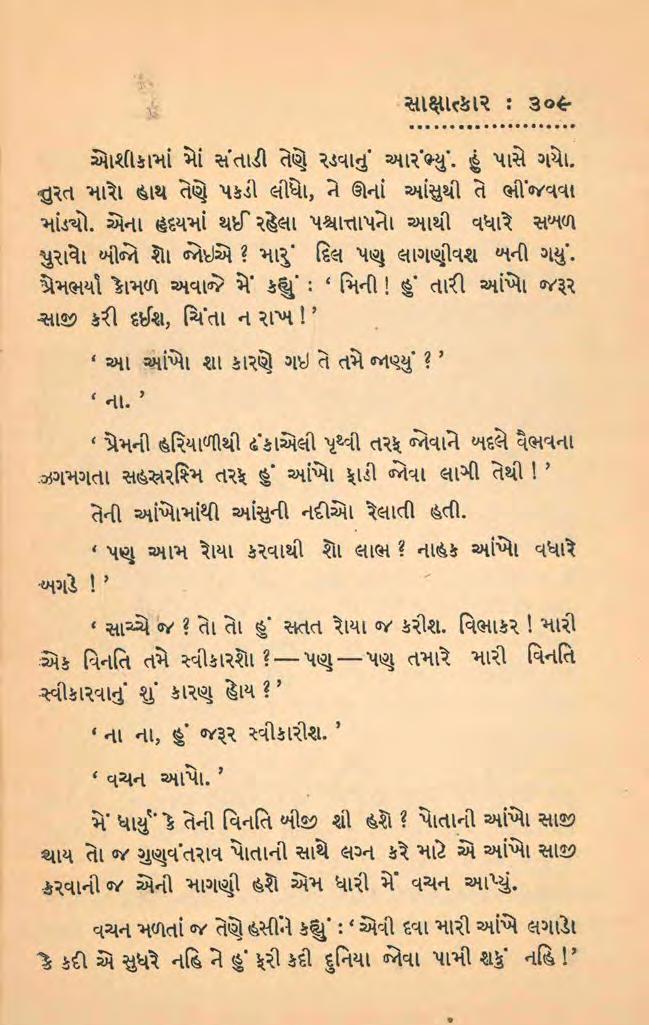 સાક્ષાત્કાર : ૩૦૯
ઓશીકામાં મોં સંતાડી તેણે રડવાનું આરંભ્યું. હું પાસે ગયો.
તુરત મારો હાથ તેણે પકડી લીધો, ને ઊનાં આંસુથી તે ભીંજવવા
માંડ્યો. એના હૃદયમાં થઈ રહેલા પશ્ચાત્તાપનો આથી વધારે સબળ
પુરાવો બીજો શો જોઇએ ? મારું દિલ પણ લાગણીવશ બની ગયું.
પ્રેમભર્યા કોમળ અવાજે મેં કહ્યું : ‘ મિની ! હું તારી આંખો જરૂર
સાજી કરી દઈશ, ચિંતા ન રાખ !’
‘ આ આંખો શા કારણે ગઇ તે તમે જાણ્યું ? ’
‘ ના. ’
‘ પ્રેમની હરિયાળીથી ઢંકાએલી પૃથ્વી તરફ જોવાને બદલે વૈભવના
ઝગમગતા સહસ્રરશ્મિ તરફ હું આંખો ફાડી જોવા લાગી તેથી ! ’
તેની આંખોમાંથી આંસુની નદીઓ રેલાતી હતી.
‘ પણ આમ રોયા કરવાથી શો લાભ ? નાહક આંખો વધારે
બગડે ! ’
‘ સાચ્ચે જ ? તો તો હું સતત રોયા જ કરીશ. વિભાકર ! મારી
એક વિનતિ તમે સ્વીકારશો ? — પણ — પણ તમારે મારી વિનતિ
સ્વીકારવાનું શું કારણ હોય ? ’
‘ ના ના, હું જરૂર સ્વીકારીશ. ’
‘ વચન આપો. ’
મેં ધાર્યું કે તેની વિનતિ બીજી શી હશે ? પોતાની આંખો સાજી
થાય તો જ ગુણવંતરાવ પોતાની સાથે લગ્ન કરે માટે એ આંખો સાજી
કરવાની જ એની માગણી હશે એમ ધારી મેં વચન આપ્યું.
વચન મળતાં જ તેણે હસીને કહ્યું : ‘ એવી દવા મારી આંખે લગાડો
કે કદી એ સુધરે નહિ ને હું ફરી કદી દુનિયા જોવા પામી શકું નહિ ! ’